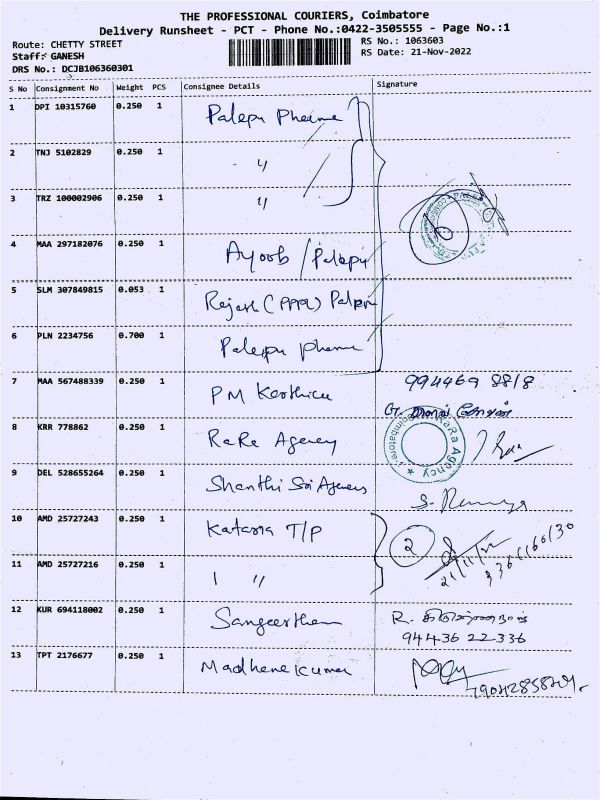 THE PROFESSIONAL COURIERS, Coimbatore
Delivery Runsheet - PCT - Phone No.:0422-3505555 - Page No.:1
Route: CHETTY STREET
Staff: GANESH
DRS No.: DCJB106360301
RS No.: 1063603
RS Date: 21-Nov-2022
S No Consignment No Weight PCS Consignee Details Signature
1 DPI 10315760 0.250 1 Palepu Pharma
2 TNJ 5102829 0.250 1 "
3 TRZ 100002906 0.250 1 "
4 MAA 297182076 0.250 1 Ayoob / Palepu
5 SLM 307849815 0.053 1 Rajesh (PPPL) Palepu
6 PLN 2234756 0.700 1 Palepu Pharma
7 MAA 567488339 0.250 1 PM 994469 8818
8 KRR 778862 0.250 1 RaRa Agency RaRa Agency Coimbatore
9 DEL 528655264 0.250 1 Shanthi Sri Agency S. Ramya
10 AMD 25727243 0.250 1 Kataria T/P 2
21/11/22
11 AMD 25727216 0.250 1 "
12 KUR 694118002 0.250 1 Sangeetham R.
94436 22336
13 TPT 2176677 0.250 1 Madhana Kumar